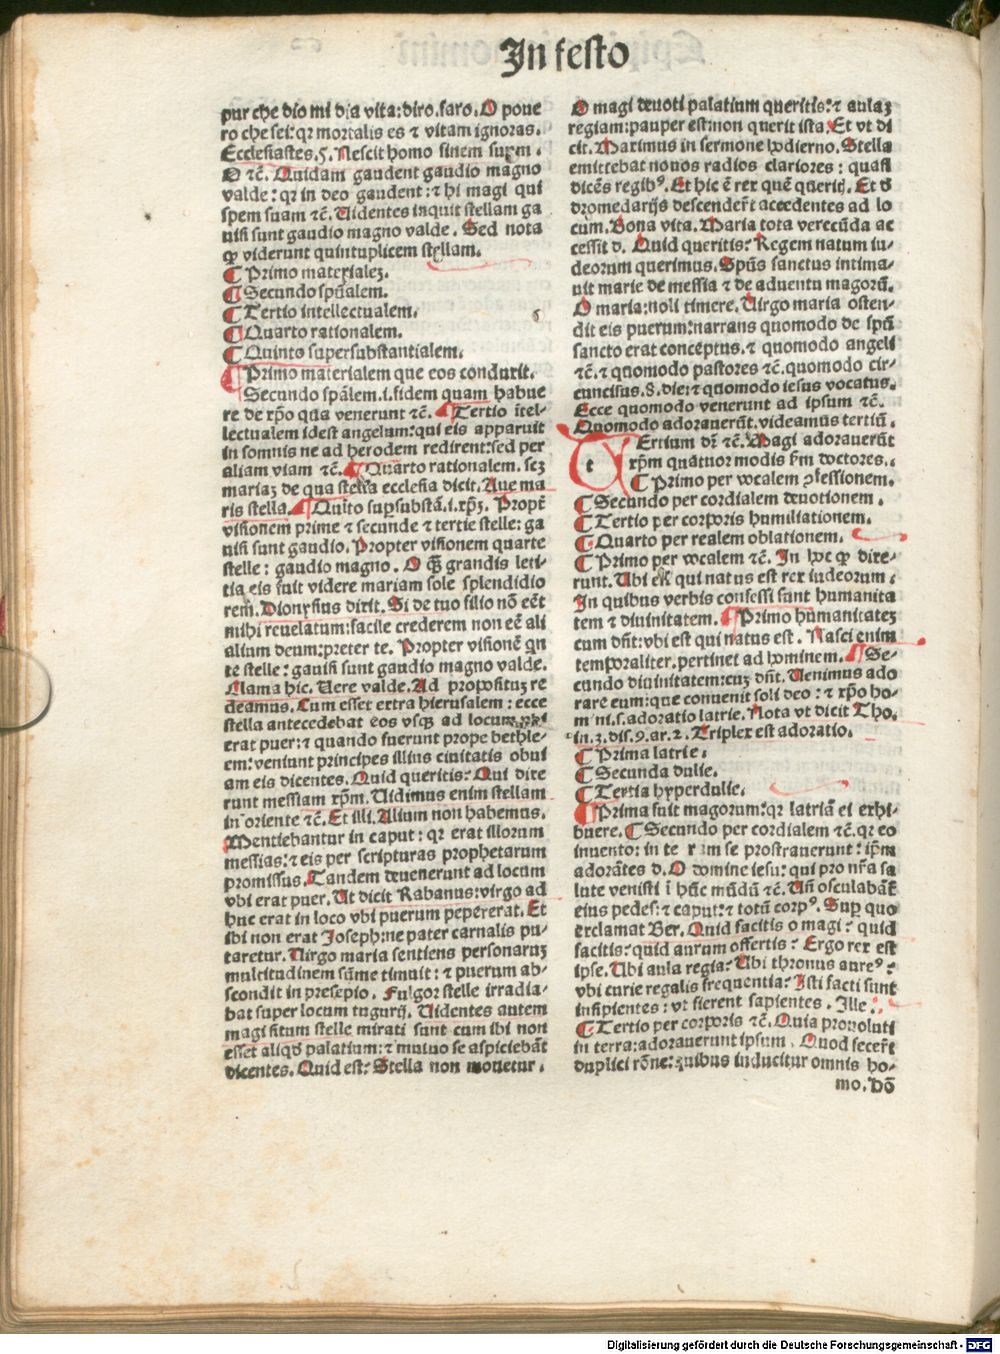 In festo
pur che dio mi dia vita:diro.faro.O poue
ro che sei:qꝛ mortalis es ⁊ vitam ignoras.
Ecclesiastes.5.Nescit homo finem suum.
O ⁊c̄.Quidam gaudent gaudio magno
valde:qꝛ in deo gaudent:⁊ hi magi qui
spem suam ⁊c̄.Uidentes inquit stellam ga
uisi sunt gaudio magno valde.Sed nota
ꝙ viderunt quintuplicem stellam.
¶Primo materialeꝫ.
¶Secundo spūalem.
¶Tertio intellectualem.
¶Quarto rationalem.
¶Quinto supersubstantialem.
¶Primo materialem que eos conduxit.
Secundo spālem.i.fidem quam habue
re de xp̄o qua venerunt ⁊c̄.¶Tertio ītel-
lectualem idest angelum:qui eis apparuit
in somnis ne ad herodem redirent:sed per
aliam viam ⁊c̄.¶Quarto rationalem.seꝫ
mariaꝫ de qua stella ecclesia dicit.Aue ma
ris stella.¶Quīto suꝑsubstā.i.xp̄ꝫ.Propt̄
visionem prime ⁊ secunde ⁊ tertie stelle:ga
uisi sunt gaudio.Propter visionem quarte
stelle:gaudio magno.O ꝙ̄ grandis leti-
tia eis fuit videre mariam sole splendidio
rem.Dionysius dixit.Si de tuo filio nō eēt
mihi reuelatum:facile crederem non eē ali
alium deum:preter te.Propter visionē qn
te stelle:gauisi sunt gaudio magno valde.
Clama hic.Uere valde.Ad propositꝫ re
deamus.Cum esset extra hierusalem:ecce
stella antecedebat eos vsqꝫ ad locum.vbi
erat puer:⁊ quando fuerunt prope bethle-
em:veniunt principes illius ciuitatis obui
am eis dicentes.Quid queritis?Qui dixe
runt messiam xp̄m.Uidimus enim stellam
in oriente ⁊c̄.Et illi.Alium non habemus.
Mentiebantur in caput:qꝛ erat illorum
messias:⁊ eis per scripturas prophetarum
promissus.Tandem deuenerunt ad locum
vbi erat puer.Ut dicit Rabanus:virgo ad
huc erat in loco vbi puerum pepererat.Et
ibi non erat Joseph:ne pater carnalis pu-
taretur.Uirgo maria sentiens personaruꝫ
multitudinem sūme timuit:⁊ puerum ab-
scondit in presepio.Fulgor stelle irradia-
bat super locum tugurij.Uidentes autem
magi situm stelle mirati sunt cum ibi non
esset aliqđ palatium:⁊ mutuo se aspiciebāt
dicentes.Quid est?Stella non mouetur.
O magi deuoti palatium queritis?⁊ aulaꝫ
regiam:pauper est:non querit ista.Et vt di
cit.Maximus in sermone hodierno.Stella
emittebat nouos radios clariores:quasi
dicēs regibꝰ.Et hic ē rex quē queritȷ.Et đ
dromedarijs descender̄t accedentes ad lo
cum.Bona vita.Maria tota verecūda ac
cessit d.Quid queritis?Regem natum iu-
deorum querimus.Spūs sanctus intima-
uit marie de messia ⁊ de aduentu magorū.
O maria:noli timere.Uirgo maria osten-
dit eis puerum:narrans quomodo de spū
sancto erat conceptus.⁊ quomodo angeli
⁊c̄.⁊ quomodo pastores ⁊c̄.quomodo cir-
cuncisus.8.die:⁊ quomodo iesus vocatus.
Ecce quomodo venerunt ad ipsum ⁊c̄.
Quomodo adorauerūt.videamus tertiū.
tErtium dr̄ ⁊c̄.Magi adorauerūt
xp̄m quatuor modis ẜm doctores.
¶Primo per vocalem ꝓfessionem.
¶Secundo per cordialem deuotionem.
¶Tertio per corporis humiliationem.
¶Quarto per realem oblationem.
¶Primo per vocalem ⁊c̄.In hoc ꝙ dixe-
runt.Ubi est qui natus est rex iudeorum.
In quibus verbis confessi sunt humanita
tem ⁊ diuinitatem.¶Primo humanitateꝫ
cum dn̄t:vbi est qui natus est.Nasci enim
temporaliter.pertinet ad hominem.¶Se-
cundo diuinitatem:cuꝫ dn̄t.Uenimus ado
rare eum:que conuenit soli deo:⁊ xp̄o ho-
mini.s.adoratio latrie.Nota vt dicit Tho.
in.3.dis.9.ar.2.Triplex est adoratio.
¶Prima latrie.
¶Secunda dulie.
¶Tertia hyperdulie.
¶Prima fuit magorum:qꝛ latriā ei exhi-
buere.¶Secundo per cordialem ⁊c̄.qꝛ eo
inuento:in terram se prostrauerunt:ip̄m
adorātes d̄.O domine iesu:qui pro nr̄a sa
lute venisti ī hūc mūdū ⁊c̄.Uñ osculabāt̄
eius pedes:⁊ caput:⁊ totū corpꝰ.Suꝑ quo
exclamat Ber.Quid facitis o magi?quid
facitis?quid aurum offertis?Ergo rex est
ipse.Ubi aula regia?Ubi thronus aureꝰ?
vbi curie regalis frequentia?Isti facti sunt
insipientes:vt fierent sapientes.Ille:.
¶Tertio per corporis ⁊c̄.Quia prouoluti
in terra:adorauerunt ipsum.Quod fecer̄t
duplici rōne:quibus inducitur omnis ho-
mo.Dō
Digitalisierung gefördert durch die Deutsche Forschungsgemeinschaft - DFG